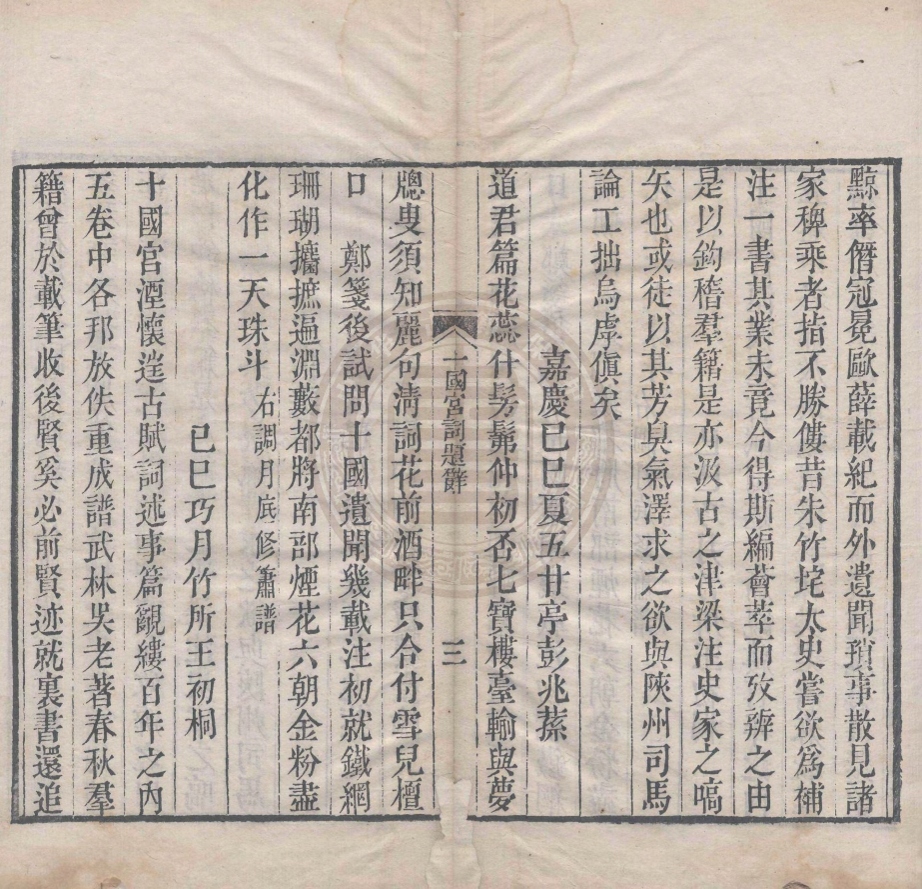 黥卒僭冠冕歐薛載紀而外遺聞瑣事散見諸
家稗乘者指不勝僂昔朱竹垞太史嘗欲爲補
注一書其業未竟今得斯編薈萃而攷辨之由
是以鉤稽羣籍是亦汲古之津梁注史家之嚆
矢也或徒以其芳臭氣澤求之欲與陝州司馬
論工拙烏虖傎矣
嘉慶己巳夏五甘亭彭兆蓀
道君篇花蕊什髣髴仲初否七寶樓臺輸與夢
十國宮詞題辭 三
牕叟須知麗句清詞花前酒畔只合付雪兒檀
口 鄭箋後試問十國遺聞幾載注初就鐵網
珊瑚攟摭遍淵藪都將南部煙花六朝金粉盡
化作一天珠斗 右調月底修簫譜
己巳巧月竹所王初桐
十國宮湮懷遠古賦詞述事篇覼縷百年之內
五卷中各邦放佚重成譜武林吳老著春秋羣
籍曾於載筆收後賢奚必前賢迹就裏書還追